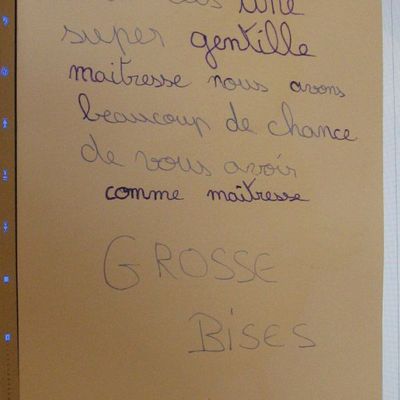 une
super gentille
maitresse nous avons
beaucoup de chance
de vous avoir
comme maîtresse
GROSSE
BISES